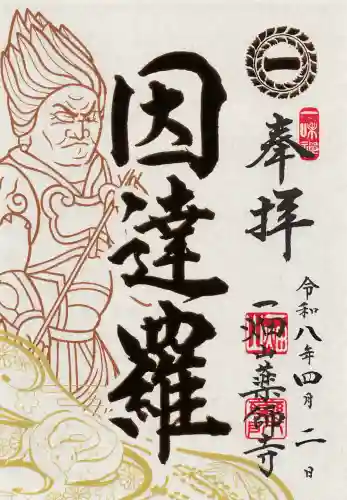 一
奉拝
因達羅
令和八年四月二日
一畑山薬師寺